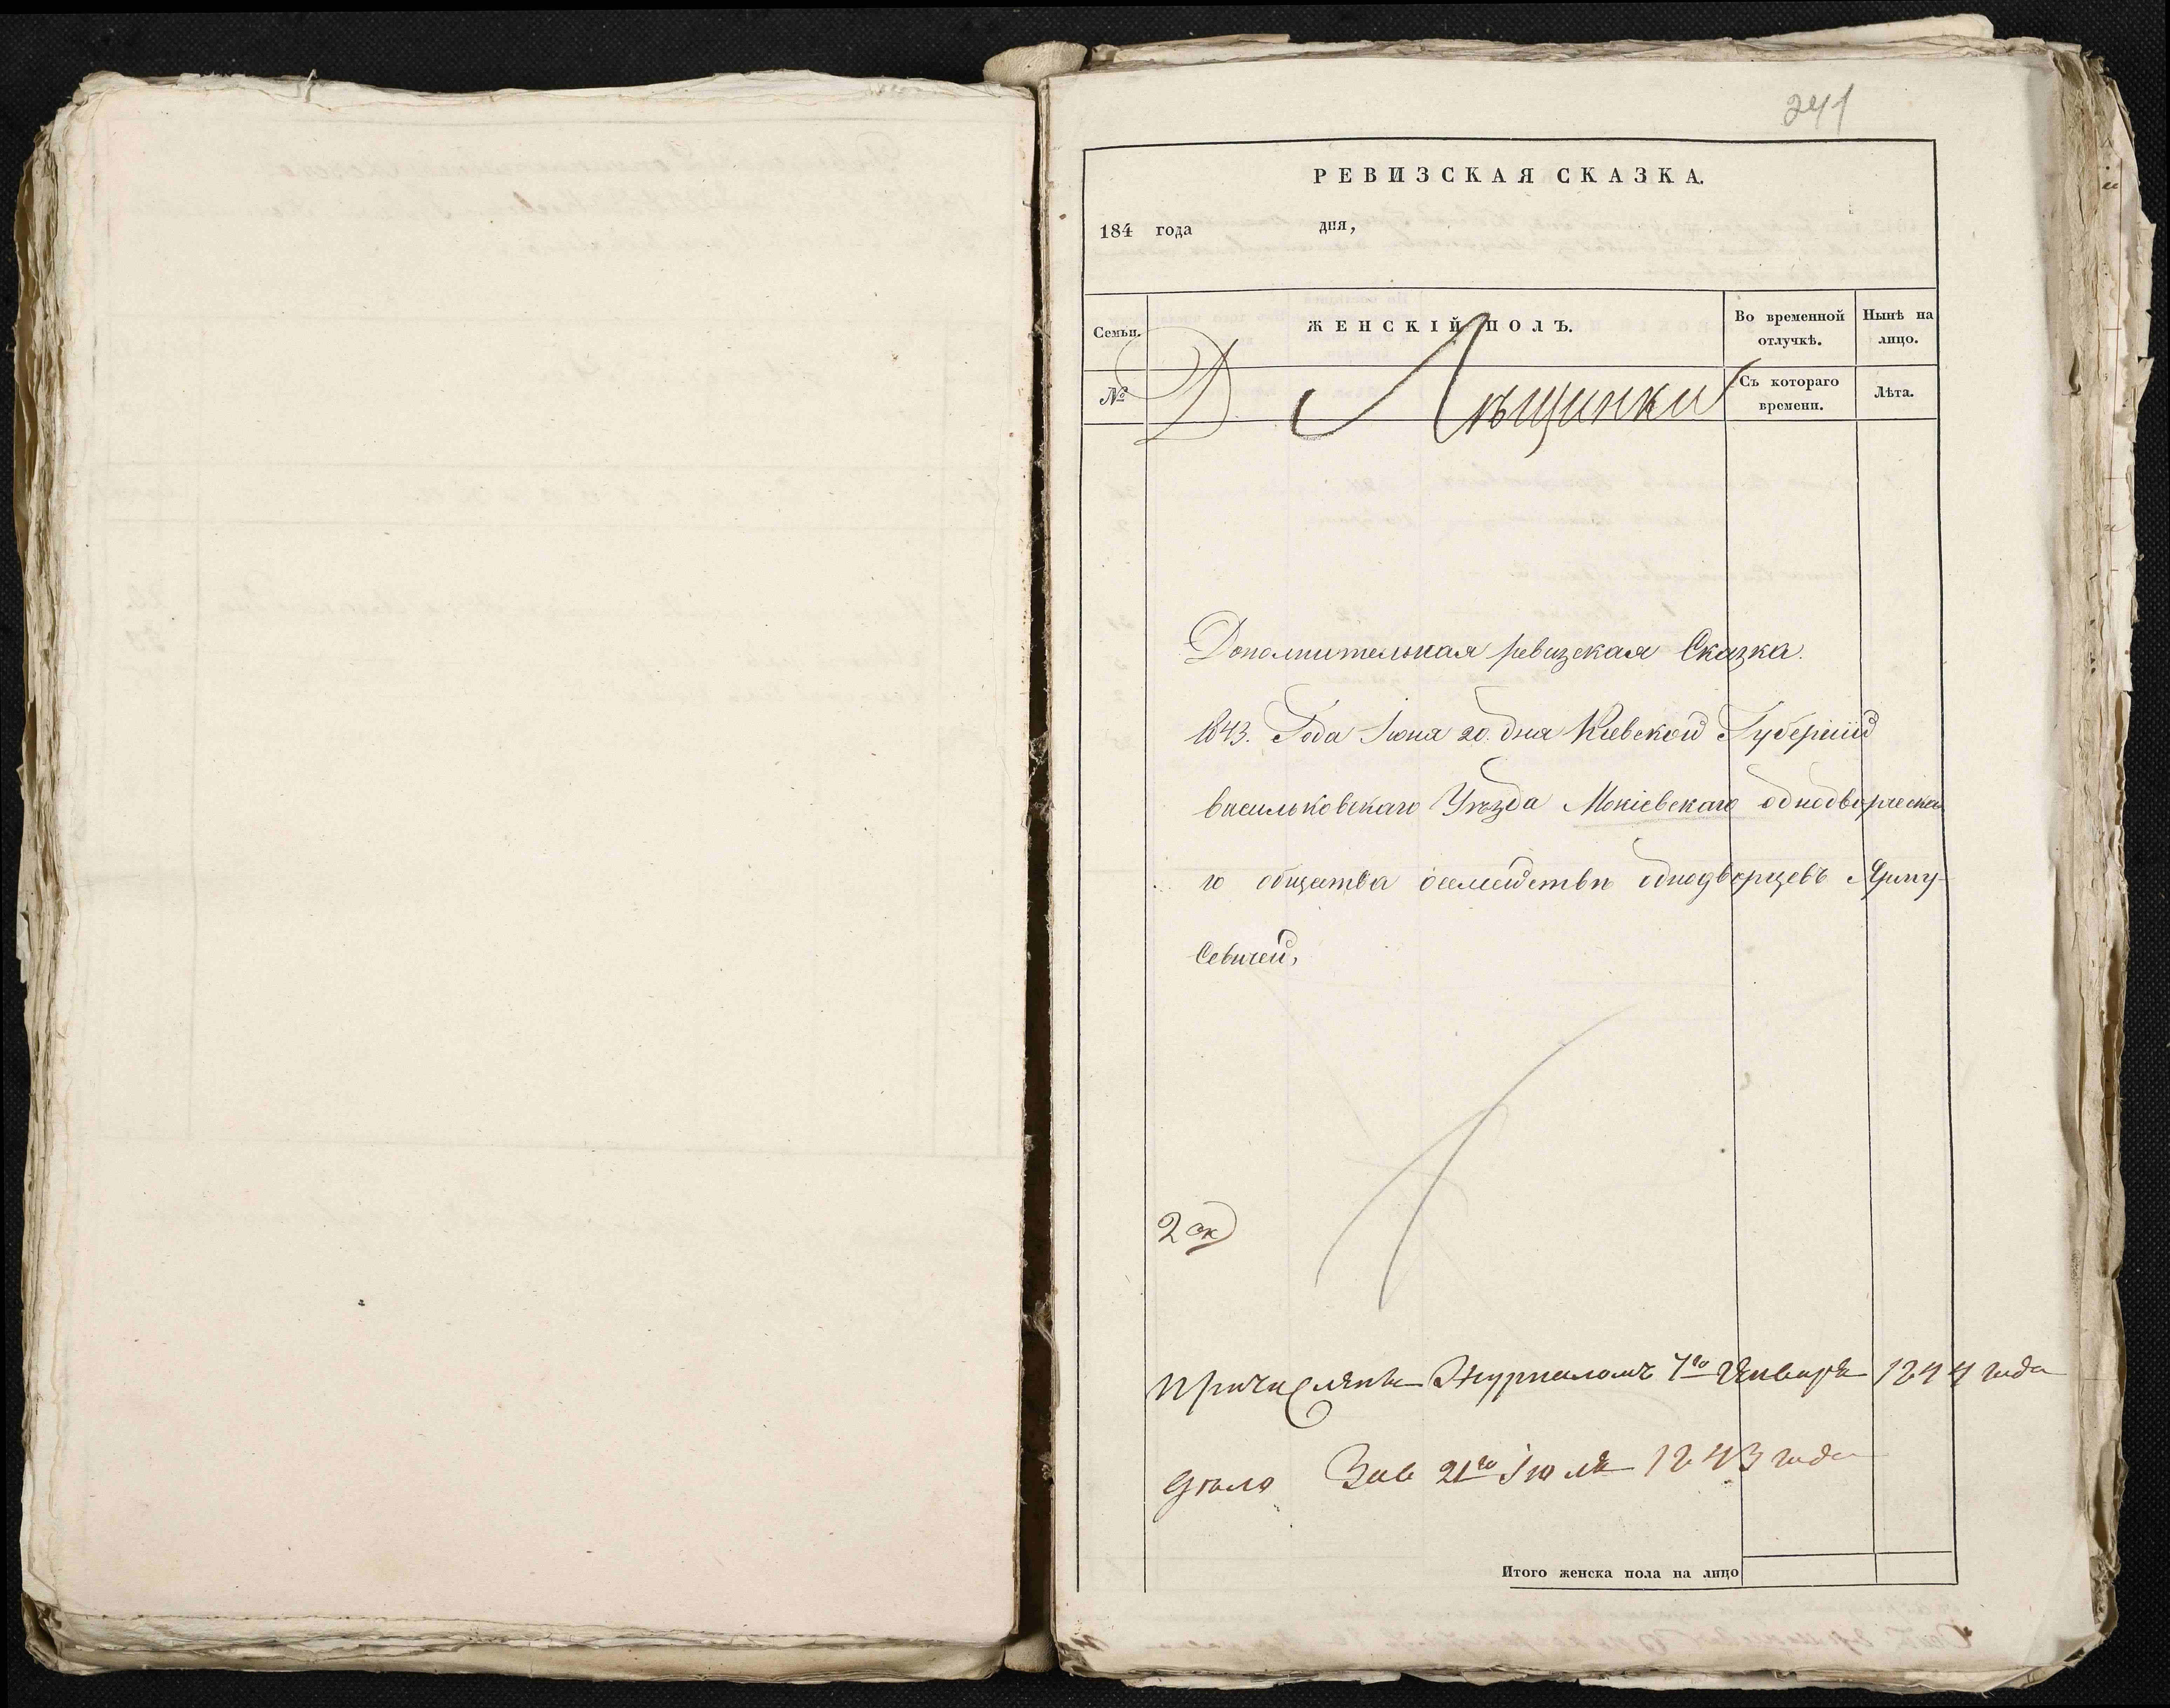 241
РЕВИЗСКАЯ СКАЗКА.
184 года дня,
Семьи. ЖЕНСКІЙ ПОЛЪ. Во временной отлучкѣ. Нынѣ на лицо.
№ Съ котораго времени. Лѣта.
Д Лѣщинки
Дополнительная ревизская Сказка.
1843. Года Іюня 20. дня Кіевской Губерніи
васильковскаго Уѣзда Мокіевскаго однодворческа
го общества о семействѣ однодворцевъ Ярму-
севичей,
2 ок
Причислены Журналомъ 7го Января 1844 года
дѣло 21го Іюля 1843 года
Итого женска пола на лицо